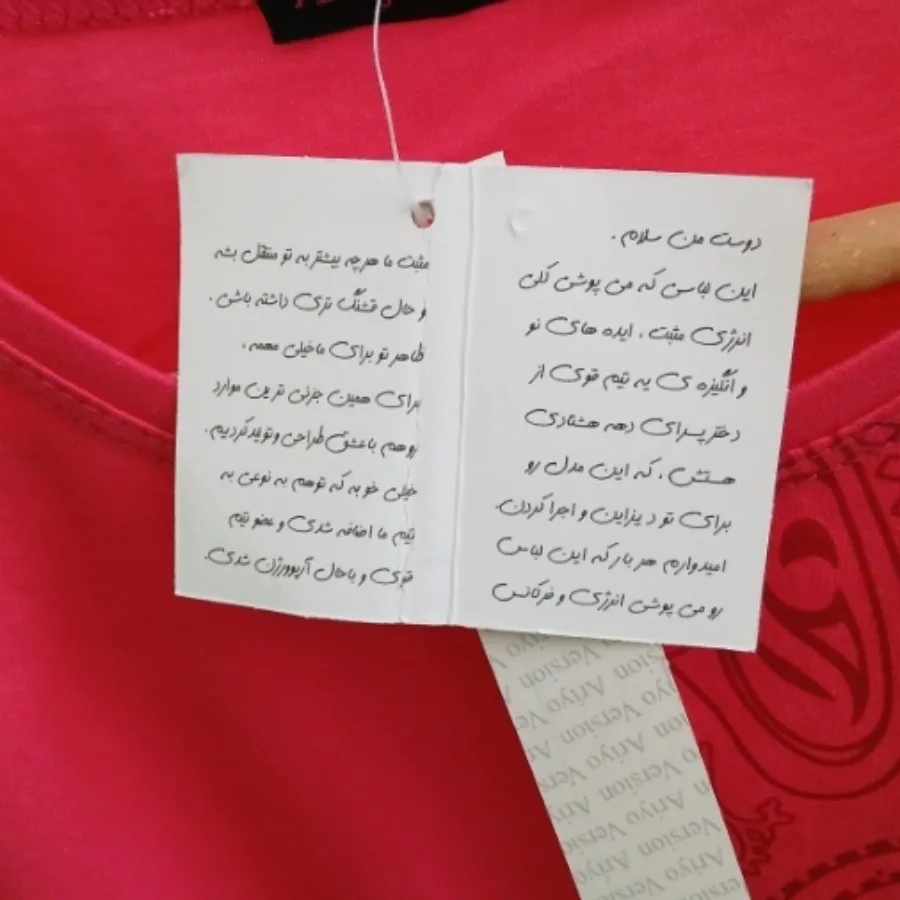 دوست من سلام .
این لباسی که می پوشی کلی
انرژی مثبت ، ایده های نو
و انگیزه ی یه تیم قوی از
دختر پسرای دهه هشتادی
هستش ، که این مدل رو
برای تو دیزاین و اجرا کردن.
امیدوارم هر بار که این لباس
رو می پوشی انرژی و فرکانس
مثبت ما هر چه بیشتر به تو منتقل بشه
و حال قشنگ تری داشته باشی .
ظاهر تو برای ما خیلی مهمه ،
برای همین جزئی ترین موارد
رو هم با عشق طراحی و تولید کردیم .
خیلی خوبه که تو هم به نوعی به
تیم ما اضافه شدی و عضو تیم
قوی و باحال آریوورژن شدی.
Version
Ariyo Version
Ariyo Version
Ariyo Version
Ariyo Version
Ariyo Version